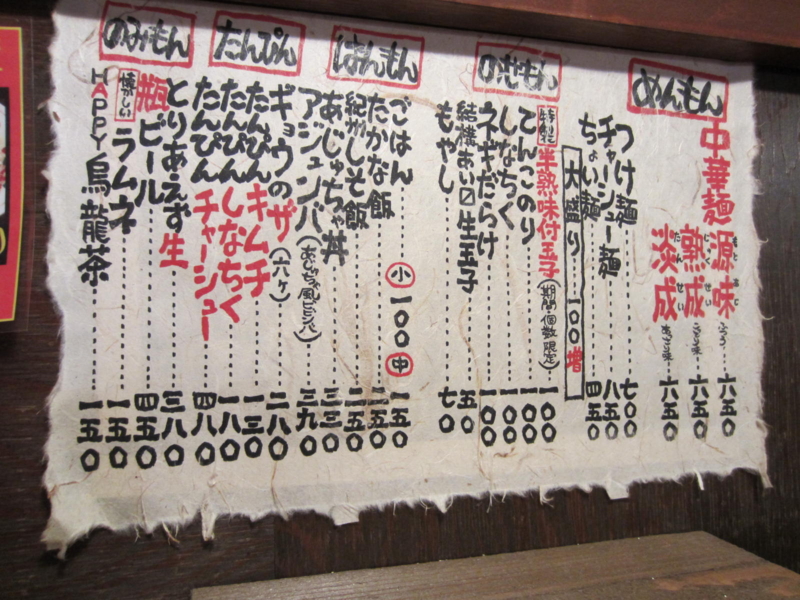 めんもん
中華麺
源味 もとあじ ふつう 六五〇
熟成 じゅくせい こってり味 六五〇
淡成 たんせい あっさり味 六五〇
つけ麺 七〇〇
チャーシュー麺 八五〇
ちょい麺 四五〇
大盛り 一〇〇増
のせもん
特製 半熟味付玉子(期間・個数限定) 一〇〇
てんこのり 一〇〇
しなちく 一〇〇
ネギだらけ 一〇〇
結構あい〼生玉子 五〇
もやし 七〇
はんもん
ごはん 小 一〇〇 中 一五〇
たかな飯 二五〇
紀州しそ飯 二五〇
あじゅちゃ丼 三三〇
アジュンバ(あじゅちゃ風ビビンバ) 三九〇
たんぴん
ギョウのザ(六ヶ) 二八〇
たんぴんキムチ 一三〇
たんぴんしなちく 一八〇
たんぴんチャーシュー 四八〇
のみもん
とりあえず生 三八〇
瓶ビール 四五〇
懐しいラムネ 一五〇
HAPPY烏龍茶 一五〇